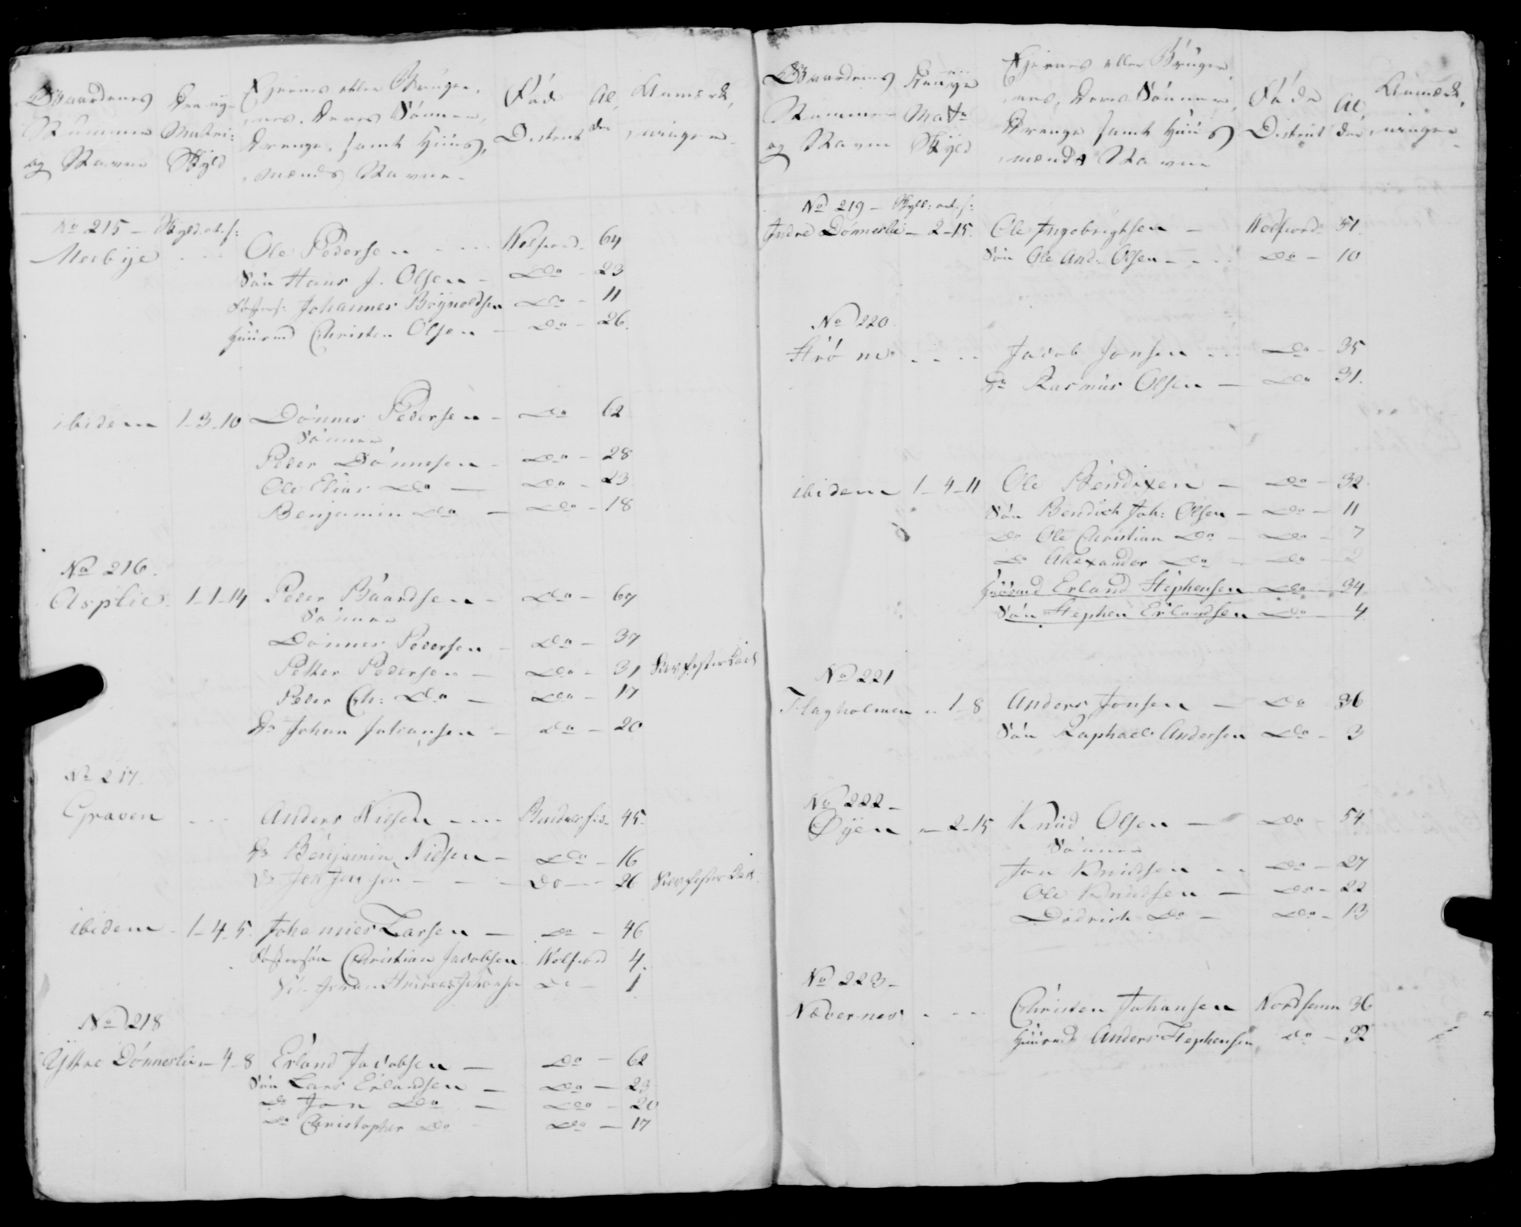 Gaardenes
Nummer
og Navne
Skyld
Ejernes eller Brugernes, deres Sønner,
Drenge, samt Huus,
mænds Navne
Føde
District
Al
der
Anmærk,
ninger
No 215 -
Ole Pedersen - 64
Søn Hans J. Olsen - Do - 23
Johannes - Do - 11
Christen Olsen - Do - 26
ibidem 1-3-10 Dønnes Pedersen - Do 62
Sønner
Peder Dønnesen - Do - 28
Ole Elias Do - Do - 23
Benjamin Do - Do - 18
No 216.
Asplie 1-1-14 Peder Baardsen - Do - 69
Sønner
Dønnes Pedersen - Do - 37
Petter Pedersen - Do - 31
Peder Ch: Do - Do - 17
Do Johan Johansen - Do - 20
No 217.
Graven Anders Nilsen - 45
Do Benjamin Nielsen - Do - 16
Do - 26
ibidem - 1-4-5 Johannes Larsen - Do - 46
Christian Jacobsen 4.
Do - 1
No 218
Yttre Dønneslie - 4-8 Erland Jacobsen - Do - 62
Søn Lars Erlandsen - Do - 23
Do Jon Do - Do - 20
Do Christopher Do Do - 17
Gaardenes
Nummer
og Navn
Skyld
Ejernes eller Bruger,
nes, deres Sønner,
Drenge samt Huus
mænds Navne
Føde
District
Al
der
Anmærk,
ninger
No 219 -
Indre Dønneslie - 2-15. Ole Ingebrigtsen - 51.
Søn Ole And: Olsen - Do - 10
No 220.
Strøm Jacob Jonsen Do - 35
Do Rasmus Olsen - Do 31.
ibidem 1-4-11 Ole Bendixen - Do - 32
Søn Bendich Joh: Olsen - Do - 11
Do Ole Christian Do - Do - 7
Do Alexander Do - Do - 2
Erland Stephensen Do - 34
Søn Stephen Erlandsen Do - 4
No 221
Flagholmen 1-8 Anders Jonsen - Do 36
Søn Raphael Andersen Do - 3
No 222 -
Øyen - 2-15 Knud Olsen - Do - 54
Sønner
Jon Knudsen Do - 27
Ole Knudsen - Do - 22
Didrich Do - Do - 13
No 223 -
Nævernes Christen Johansen 36
Anders Stephensen Do - 32